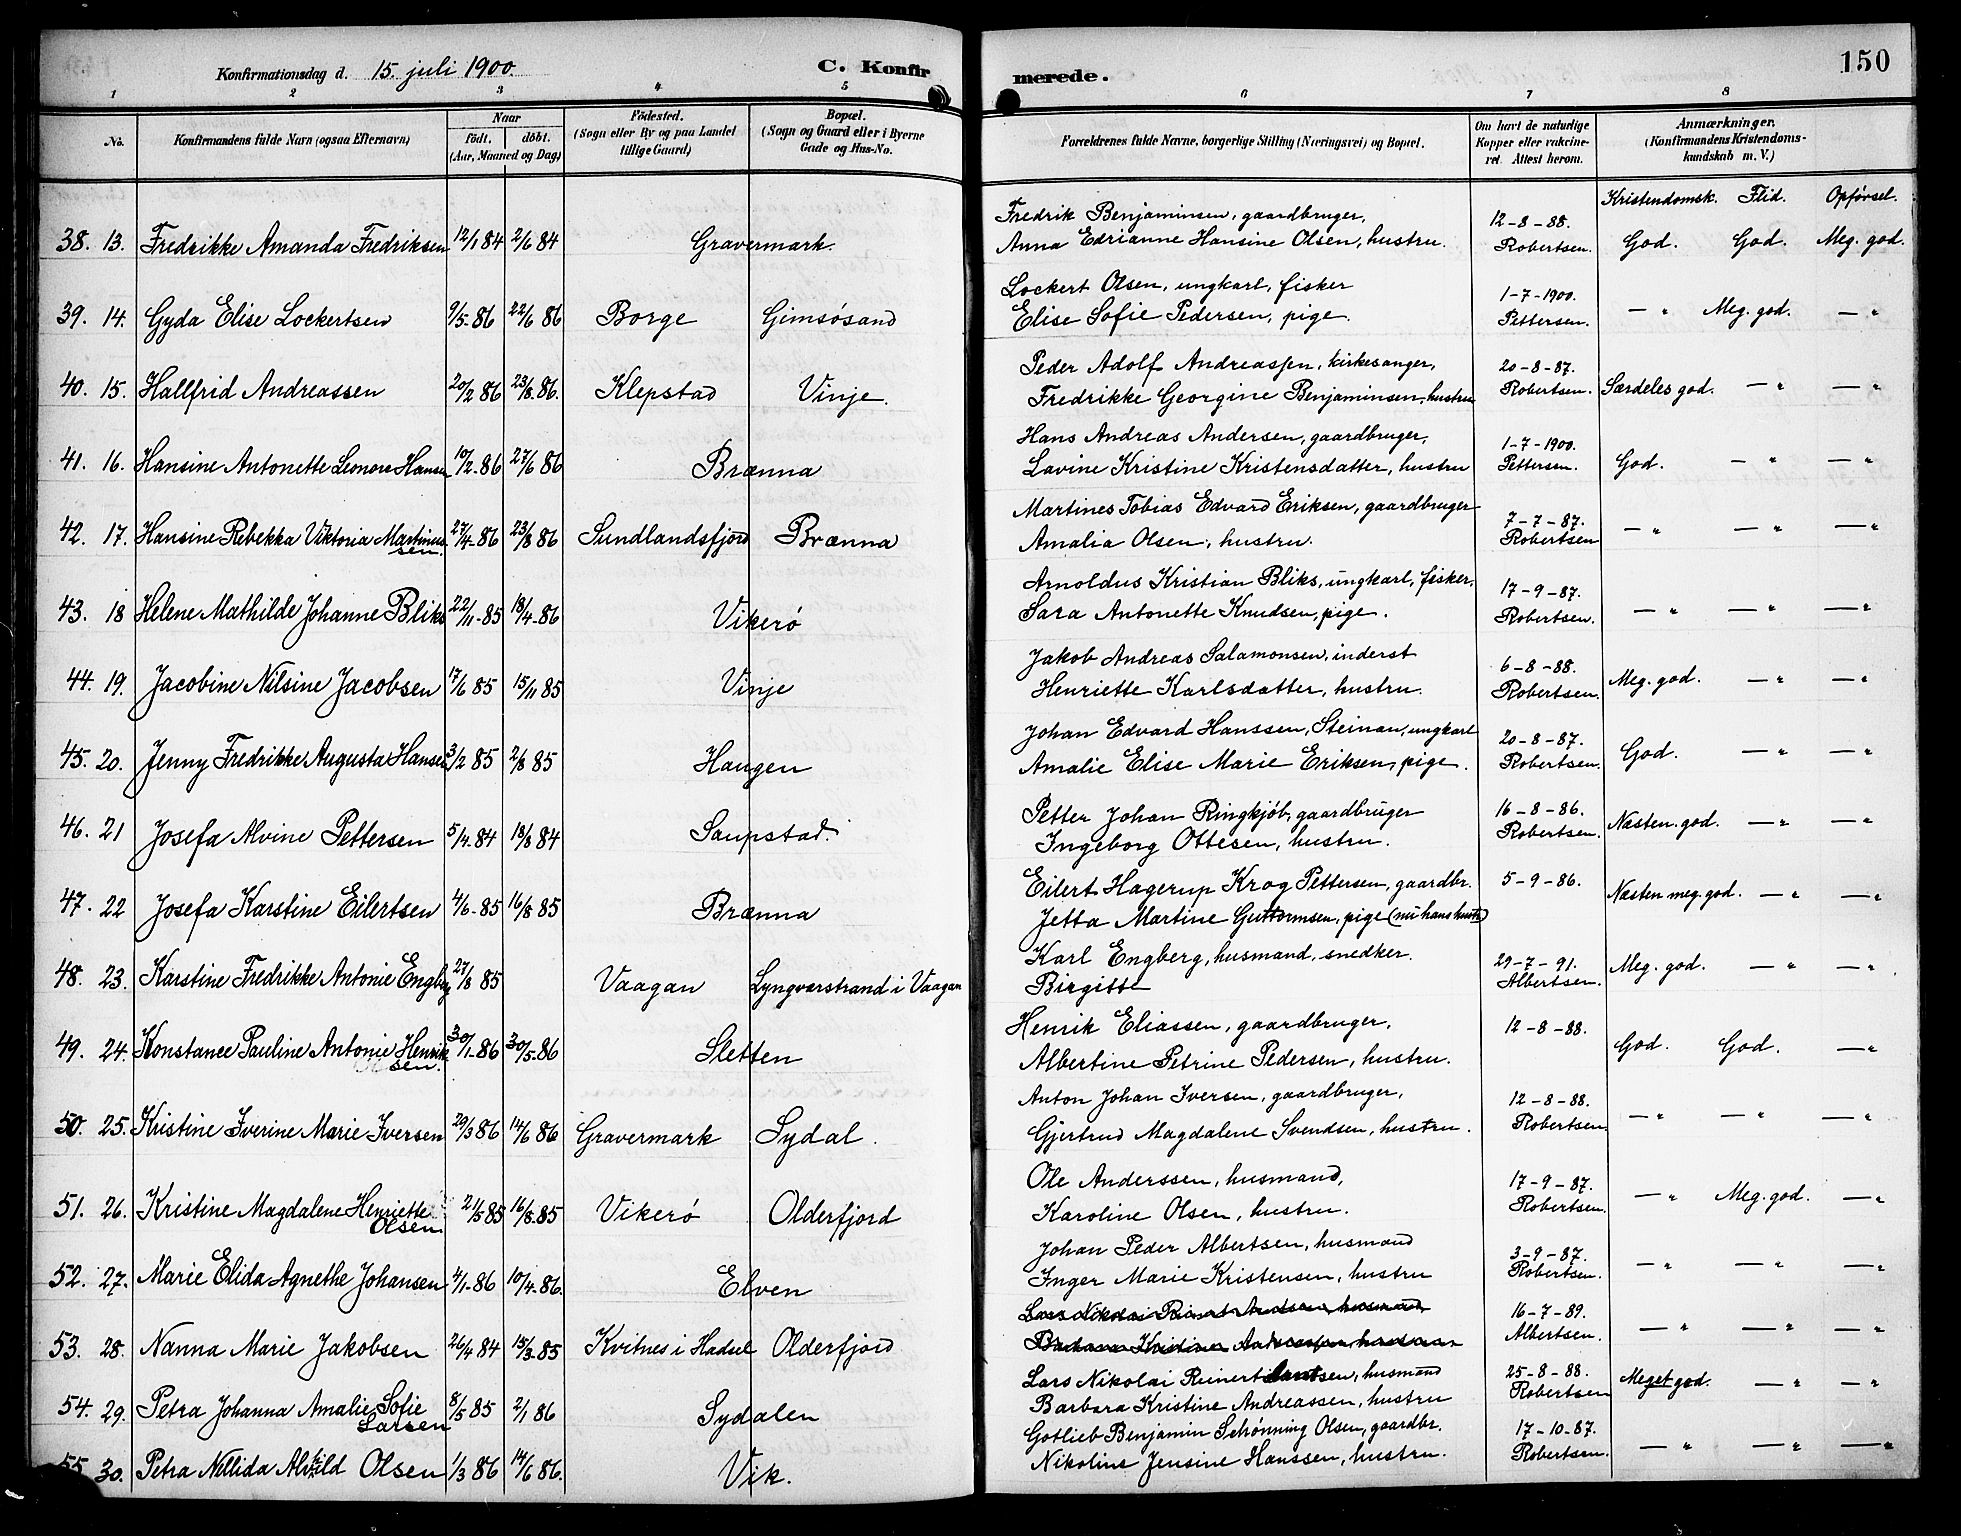 150
Konfirmationsdag d. 15. juli 1900. C. Konfirmerede.
1 2 3 4 5 6 7 8
No. Konfirmandens fulde Navn (ogsaa Efternavn) Naar födt. döbt. (Aar, Maaned og Dag) Födested. (Sogn eller By og paa Landet tillige Gaard) Bopæl. (Sogn og Gaard eller i Byerne Gade og Hus-No. Forældrenes fulde Navne, borgerlige Stilling (Næringsvei) og Bopæl. Om havt de naturlige Kopper eller vakcineret. Attest herom. Anmærkninger. (Konfirmandens Kristendomskundskab m. V.)
Kristendomsk. Flid. Opførsel.
Fredrik Benjaminsen, gaardbruger, 12-8-88.
38. 13. Fredrikke Amanda Fredriksen 12/1 84 2/6 84 Gravermark. Anna Edrianne Hansine Olsen, hustru. Robertsen. God. God. Meg. god.
Lockert Olsen, ungkarl, fisker 1-7-1900.
39. 14. Gyda Elise Lockertsen 9/5-86 22/6 86 Borge Gimsøsand Elise Sofie Pedersen, pige. Pettersen. — „ Meg. god. — „
Peder Adolf Andreassen, kirkesanger, 20-8-87.
40. 15. Hallfrid Andreassen 20/2 86 23/8 86. Klepstad Vinje. Fredrikke Georgine Benjaminsen, hustru Robertsen. Særdeles god. — „ — „
Hans Andreas Andersen, gaardbruger, 1-7-1900.
41. 16. Hansine Antonette Leonore Hansen 10/2-86 27/6 86 Brænna Lavine Kristine Kristensdatter, hustru Pettersen. God. — „ — „
Martines Tobias Edvard Eriksen, gaardbruger 7-7-87.
42. 17. Hansine Rebekka Viktoria Martinussen. 27/4-86 23/8 86 Sundlandsfjord Brænna Amalia Olsen, hustru. Robertsen — „ — „ — „
Arnoldus Kristian Bliks, ungkarl, fisker, 17-9-87.
43. 18 Helene Mathilde Johanne Bliks 22/11-85 18/4-86 Vikerø Sara Antonette Knudsen, pige. Robertsen. — „ — „ — „
Jakob Andreas Salamonsen, inderst 6-8-88.
44. 19. Jacobine Nilsine Jacobsen 17/6 85 15/11 85 Vinje Henriette Karlsdatter, hustru. Robertsen. Meg. god. — „ — „
Johan Edvard Hanssen, Steinan, ungkarl 20-8-87.
45. 20. Jenny Fredrikke Augusta Hansen 3/2 85 2/8 85 Haugen Amalie Elise Marie Eriksen, pige. Robertsen. God. — „ — „
Petter Johan Ringkjøb, gaardbruger 16-8-86.
46. 21 Josefa Alvine Pettersen 5/4-84 18/8 84 Saupstad. Ingeborg Ottesen, hustru. Robertsen. Næsten. god. — „ — „
Eilert Hagerup Krog Pettersen, gaardbr. 5-9-86.
47. 22 Josefa Karstine Eilertsen 4/6-85 16/8 85 Brænna Jetta Martine Guttormsen, pige (nu hans hustr.) Næsten meg. god. — „ — „
Karl Engberg, husmand, snedker. 29-7-91.
48. 23. Karstine Fredrikke Antonie Engberg 27/8 85 Vaagan Lyngværstrand i Vaagan Birgitte Albertsen. Meg. god. — „ — „
Henrik Eliassen, gaardbruger, 12-8-88.
49. 24. Konstance Pauline Antonie Henriksen. 30/1-86 30/5-86 Sletten Albertine Petrine Pedersen, hustru. God. God. — „
Anton Johan Iversen, gaardbruger, 12-8-88.
50. 25. Kristine Iverine Marie Iversen 29/3 86 14/6 86 Gravermark Sydal. Gjertrud Magdalene Svendsen, hustru. Robertsen — „ — „ — „
Ole Anderssen, husmand, 17-9-87.
51. 26. Kristine Magdalene Henriette Olsen. 21/5 85 16/8-85 Vikerø Olderfjord Karoline Olsen, hustru. Robertsen. — „ Meg. god. — „
Johan Peder Albertsen, husmand 3-9-87.
52. 27. Marie Elida Agnethe Johansen 4/1-86 10/4-86. Elven Inger Marie Kristensen, hustru Robertsen. — „ — „ — „
16-7-89.
53. 28. Nanna Marie Jakobsen 26/4 84 15/3-85 Kvitnes i Hadsel Olderfjord Albertsen. — „ — „ — „
Lars Nikolai Reinert husmand 25-8-88.
54. 29. Petra Johanna Amalie Sofie Larsen 8/5 85 2/1 86 Sydalen Barbara Kristine Andreassen, hustru Robertsen Meget god. — „ — „
Gotlieb Benjamin Schønning Olsen, gaardbr. 17-10-87.
55. 30. Petra Nellida Alvhild Olsen 1/3 86 14/6 86. Vik. Nikoline Jensine Hanssen, hustru. Robertsen. — „ — „ — „